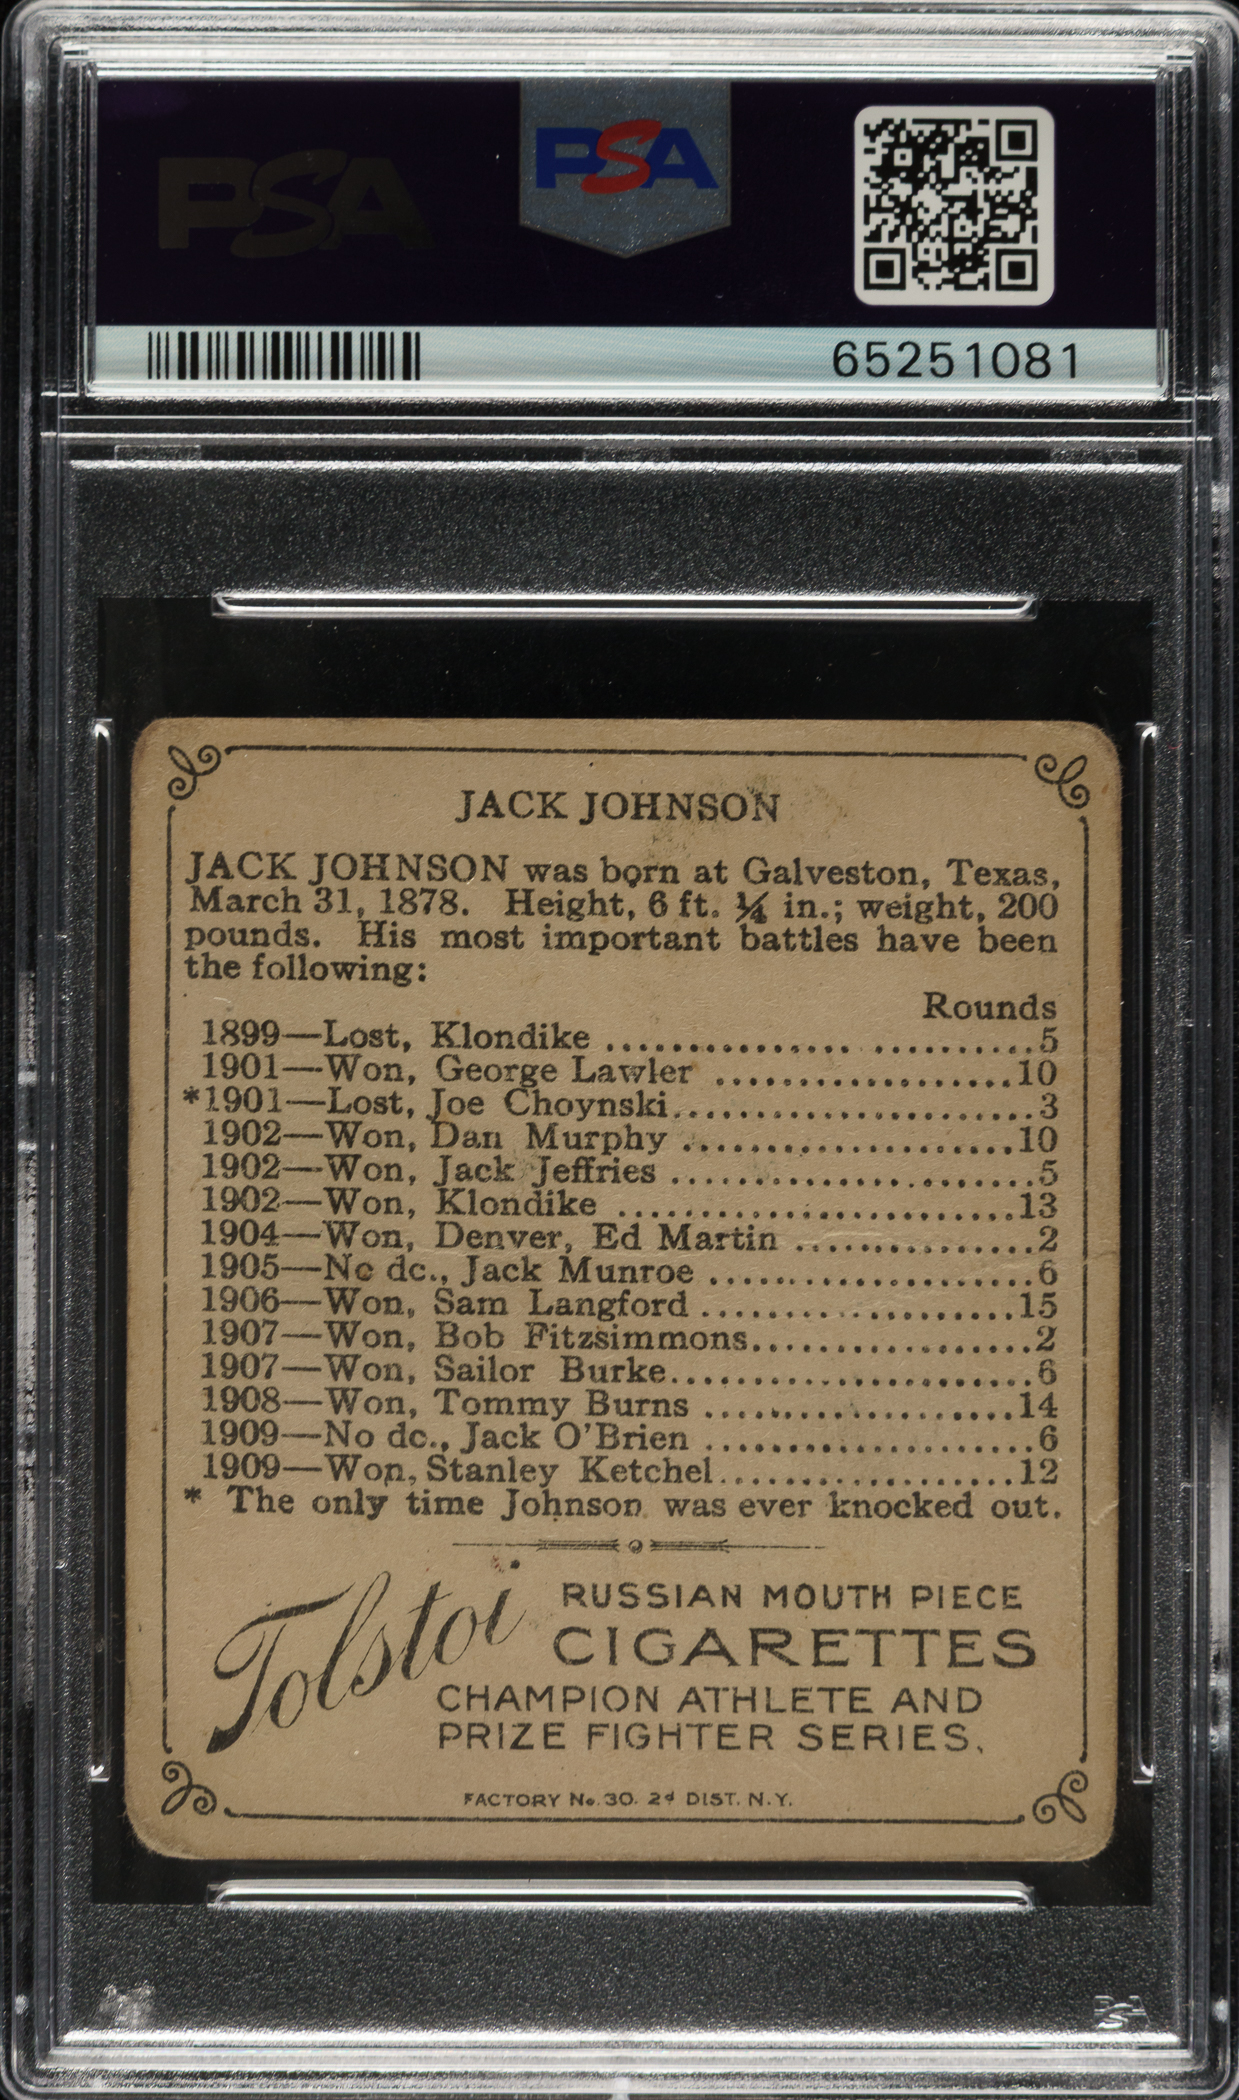 PSA
PSA
65251081
JACK JOHNSON
JACK JOHNSON was born at Galveston, Texas,
March 31, 1878. Height, 6 ft. ¼ in.; weight, 200
pounds. His most important battles have been
the following:
Rounds
1899—Lost, Klondike ............... ..........5
1901—Won, George Lawler ..................10
*1901—Lost, Joe Choynski......................3
1902—Won, Dan Murphy ....................10
1902—Won, Jack Jeffries ......................5
1902—Won, Klondike ........................13
1904—Won, Denver, Ed Martin ...............2
1905—No dc., Jack Munroe ....................6
1906—Won, Sam Langford ...................15
1907—Won, Bob Fitzsimmons.................2
1907—Won, Sailor Burke......................6
1908—Won, Tommy Burns ...................14
1909—No dc., Jack O'Brien ....................6
1909—Won, Stanley Ketchel..................12
* The only time Johnson was ever knocked out.
Tolstoi RUSSIAN MOUTH PIECE
CIGARETTES
CHAMPION ATHLETE AND
PRIZE FIGHTER SERIES.
FACTORY No. 30. 2d DIST. N.Y.
PSA